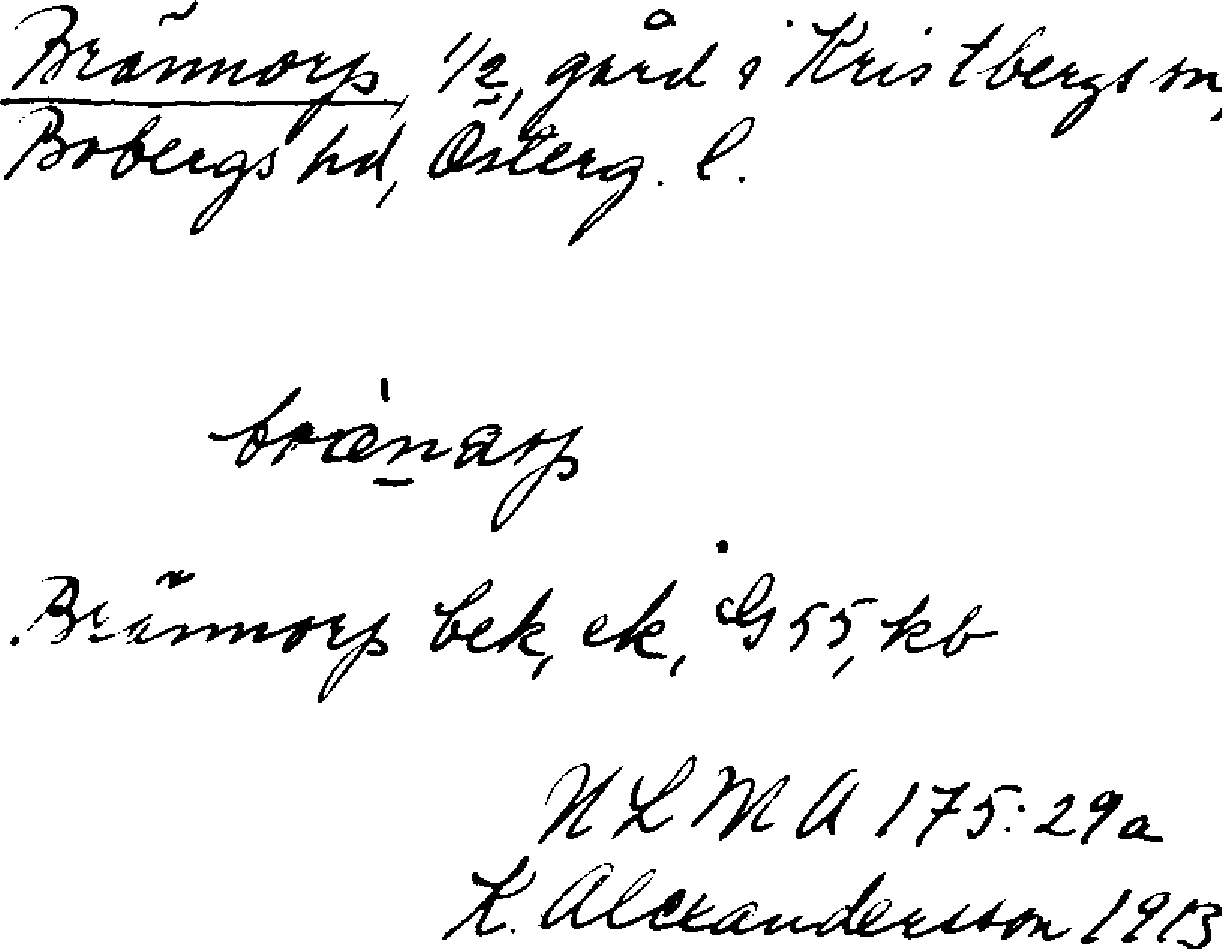 Brännorp, 1/2, gård i Kristbergs sn,
Bobergs hd, Österg. l.
brænarp
Brännorp bek, ek, G 55, kb
N L M A 175:29a
K. Alexandersson 1913